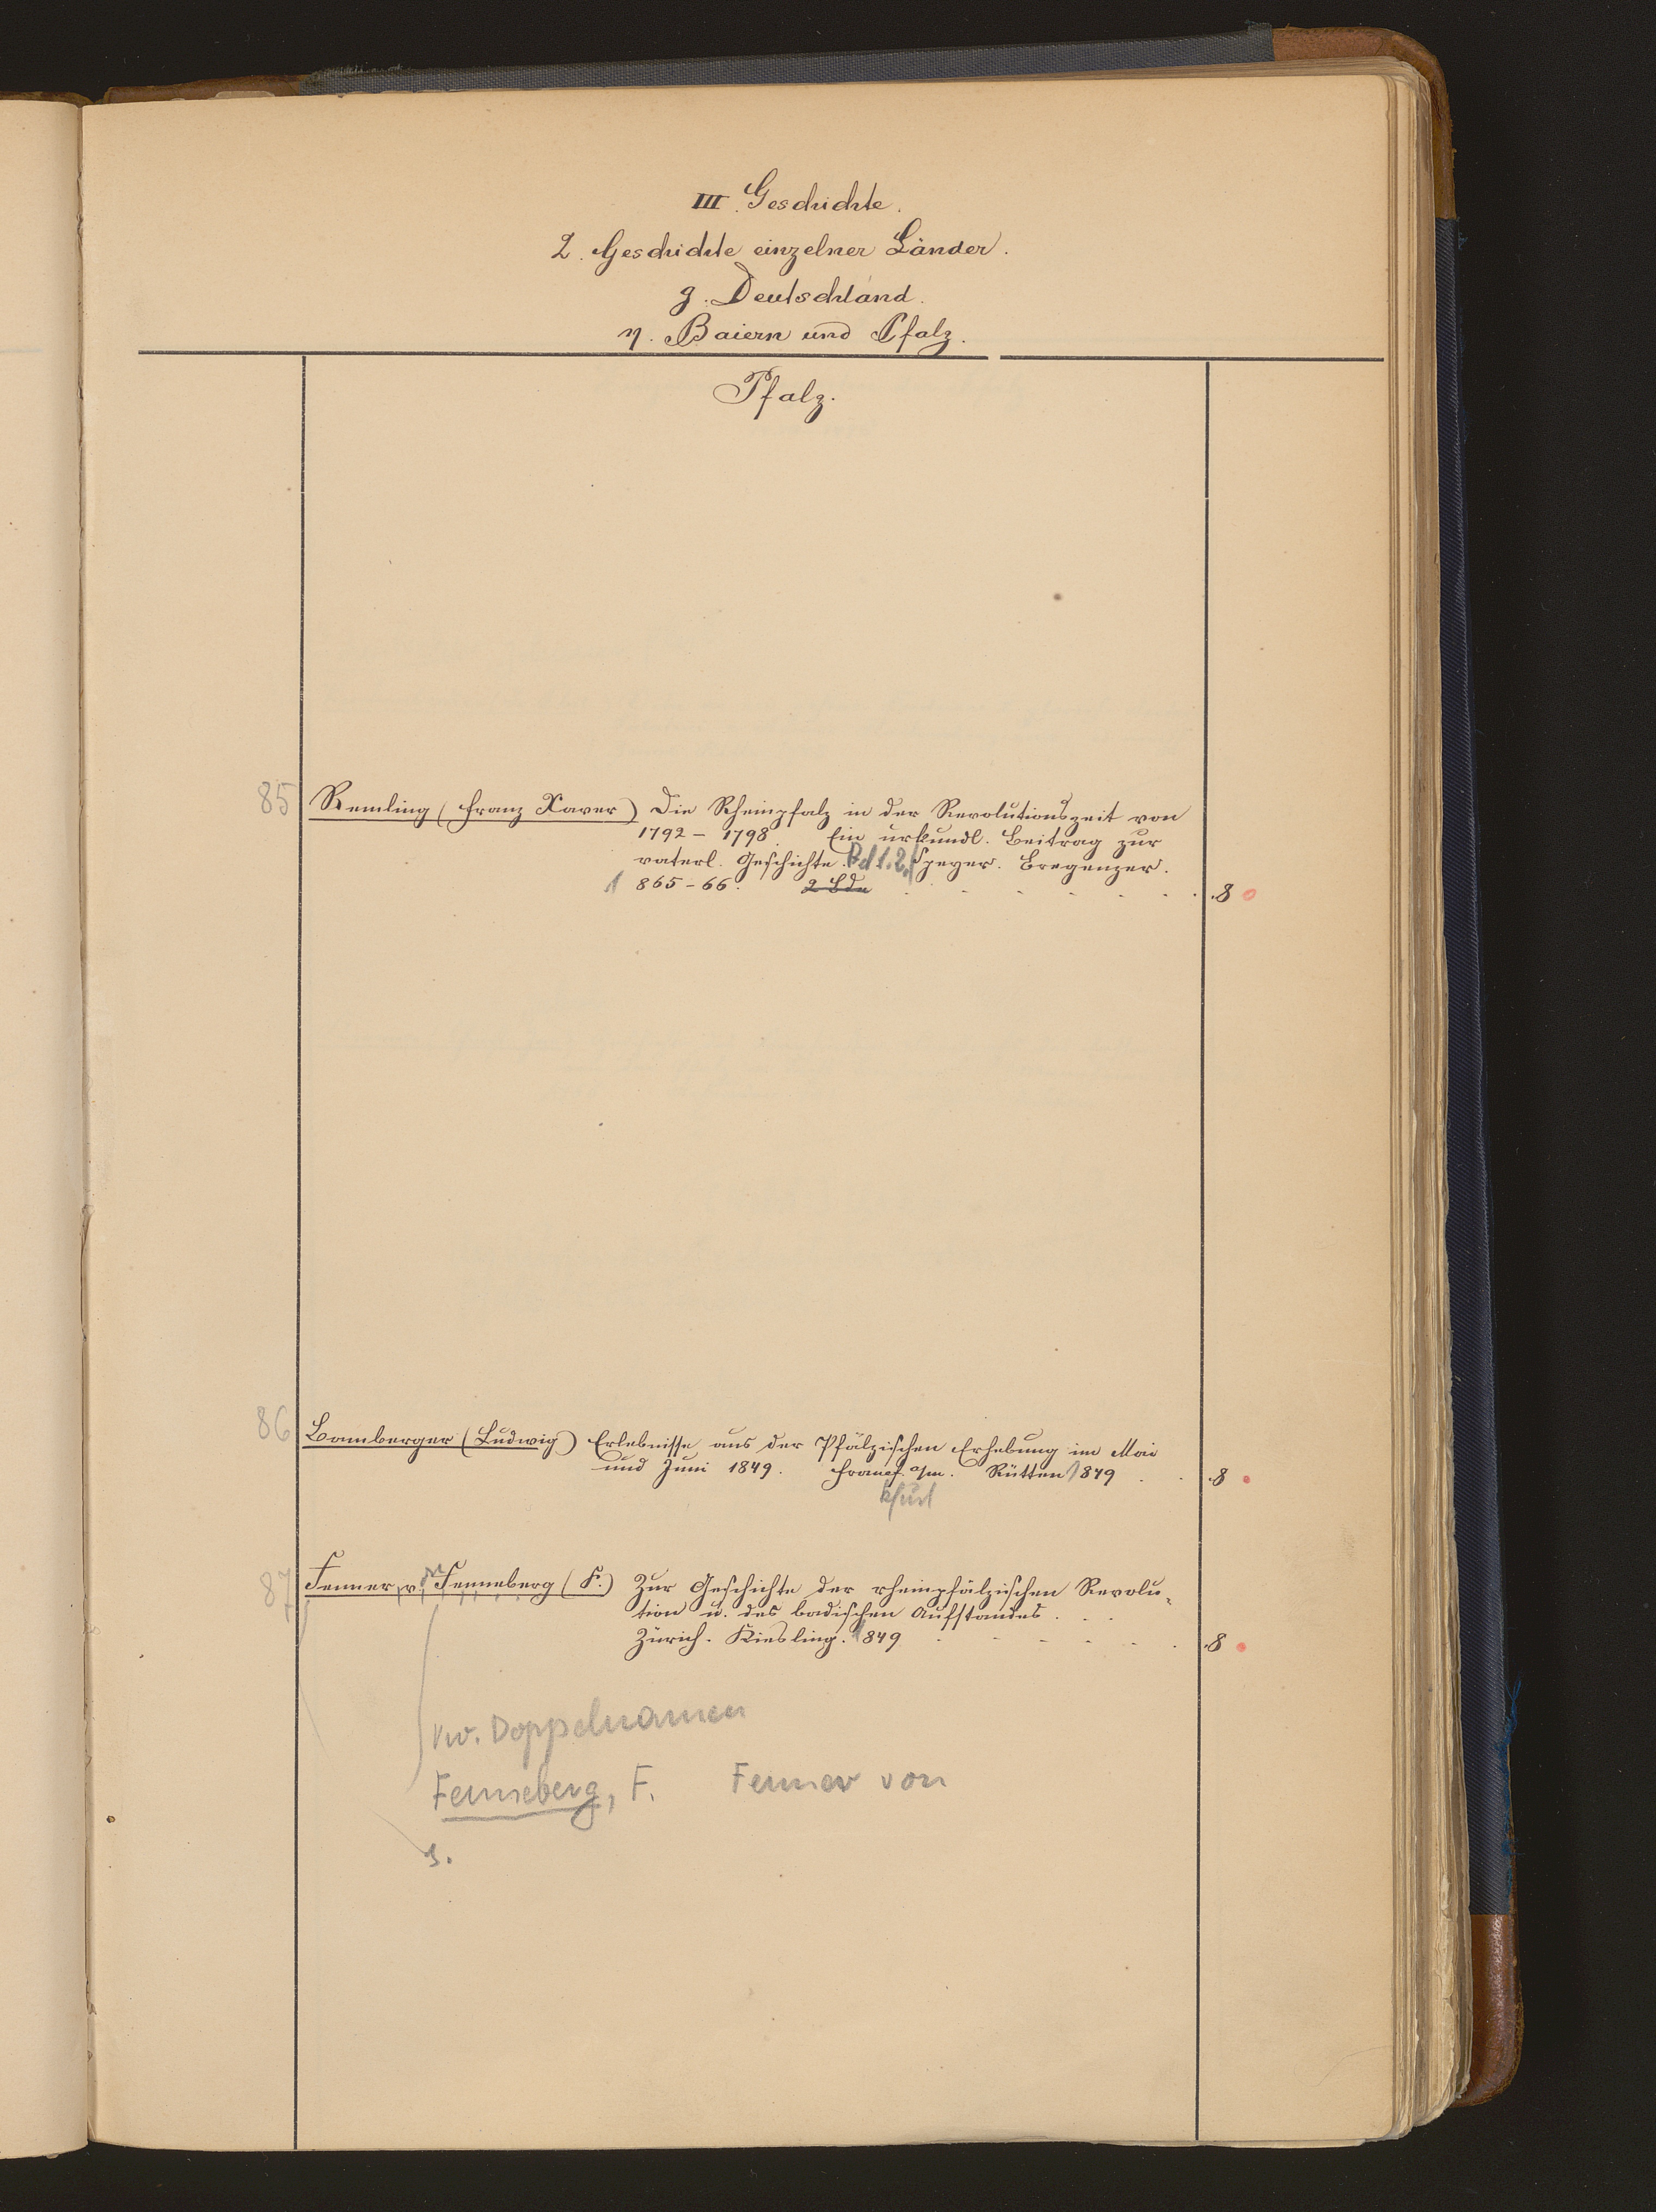 III. Geschichte.
2. Geschichte einzelner Länder.
g. Deutschland.
η. Baiern und Pfalz.
Pfalz.
85 Remling (Franz Xaver) Die Rheinpfalz in der Revolutionszeit von
1792 - 1798. Ein urkundl. Beitrag zur
vaterl. Geschichte. Bd 1.2. Speyer. Bregenzer.
1865-66. 2 Bde 8
86 Bamberger (Ludwig) Erlebnisse aus der Pfälzischen Erhebung im Mai
und Juni 1849. Francf. a/m. Rütten 1849 8
kfurt
87 Fenner v. Fenneberg (F.) Zur Geschichte der rheinpfälzischen Revolu-
tion u. des badischen Aufstandes.
Zürich. Kiesling. 1849 8
Vw. Doppelnamen
Fenneberg, F. Fenner von
s.